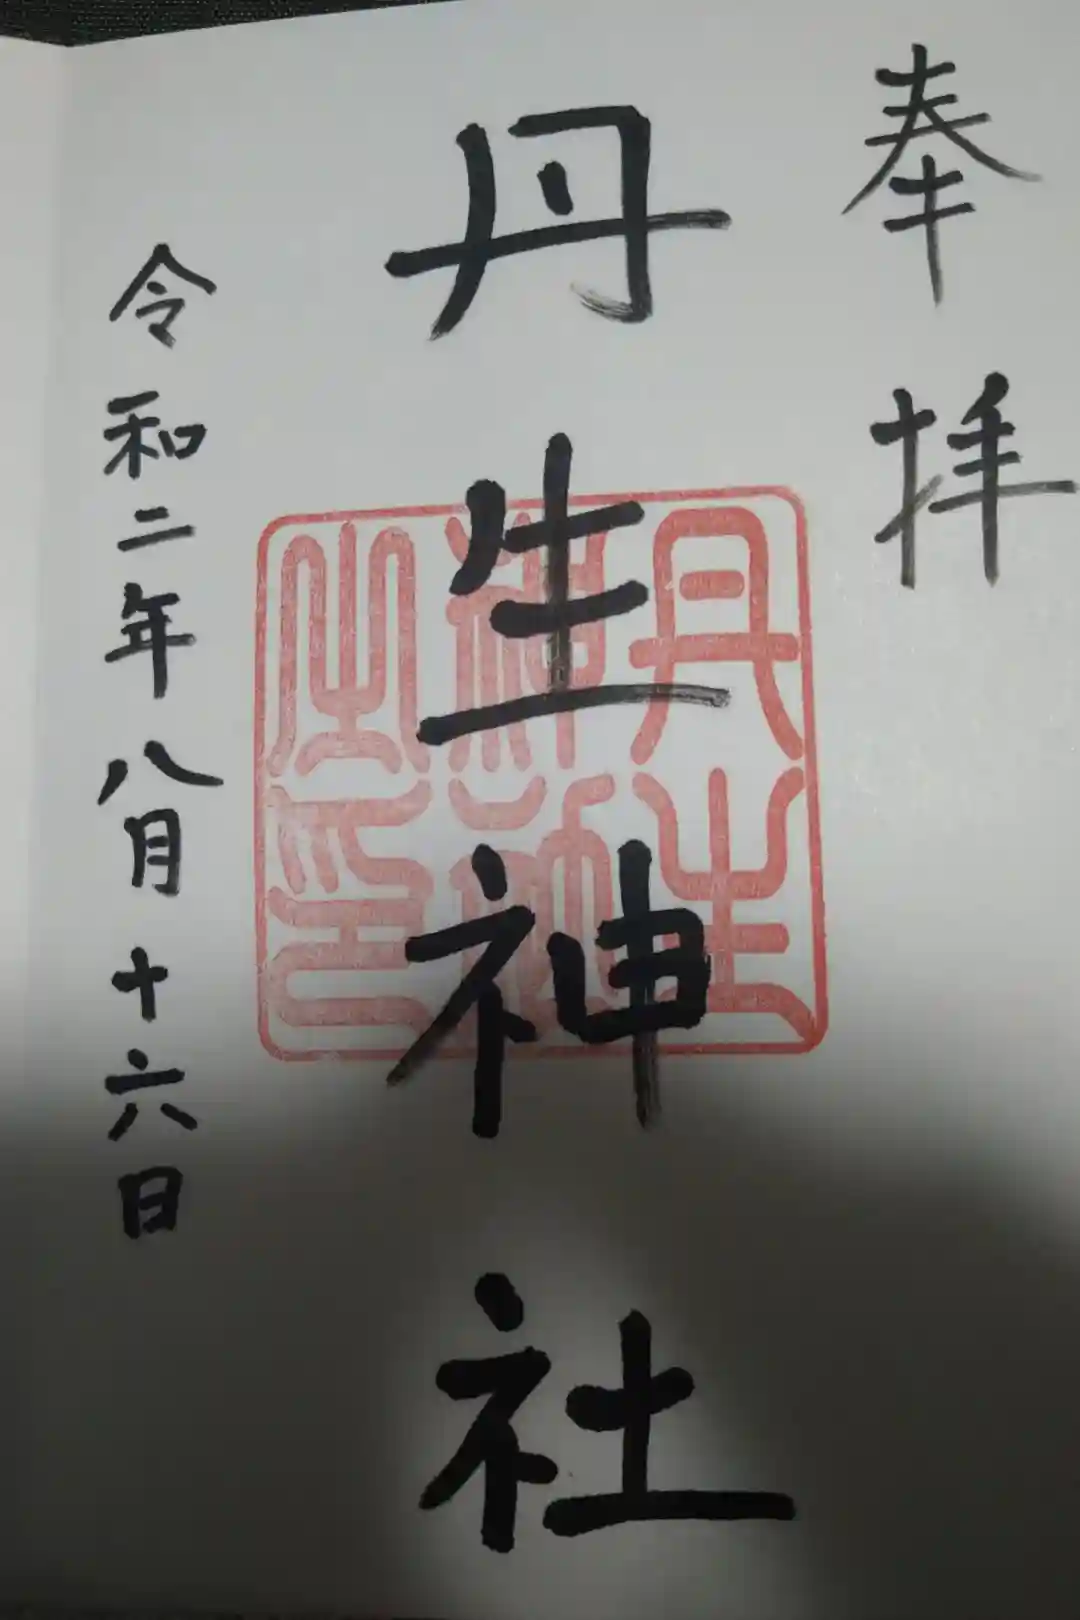 奉拝
丹生神社
丹生
神社
之印
令和二年八月十六日